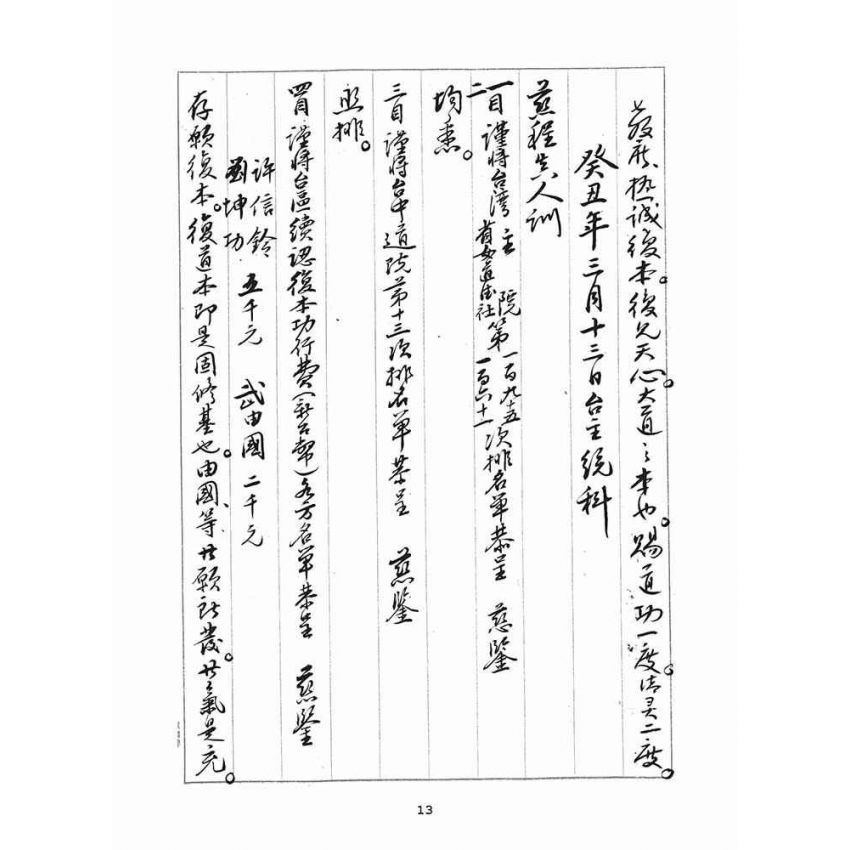 發願热誠復本。復見天心。大道之本也。賜道功一度。清靈二度。
癸丑年三月十三日台主統科
慈程真人訓
一二目 謹將台灣主院第一百九十五 首女道德社一百六十一 次排名單恭呈 慈鑒
均悉。
三目 謹將台中道院第十三次排名單恭呈 慈鑒
照排。
四目 謹將台區續認復本功行費(新台幣)各方名單恭呈 慈鑒
許信鈴 劉坤功 五千元 武由國 二千元
存願復本。復道本即是固修基也。由國等。其願所發。其氣是充。
13